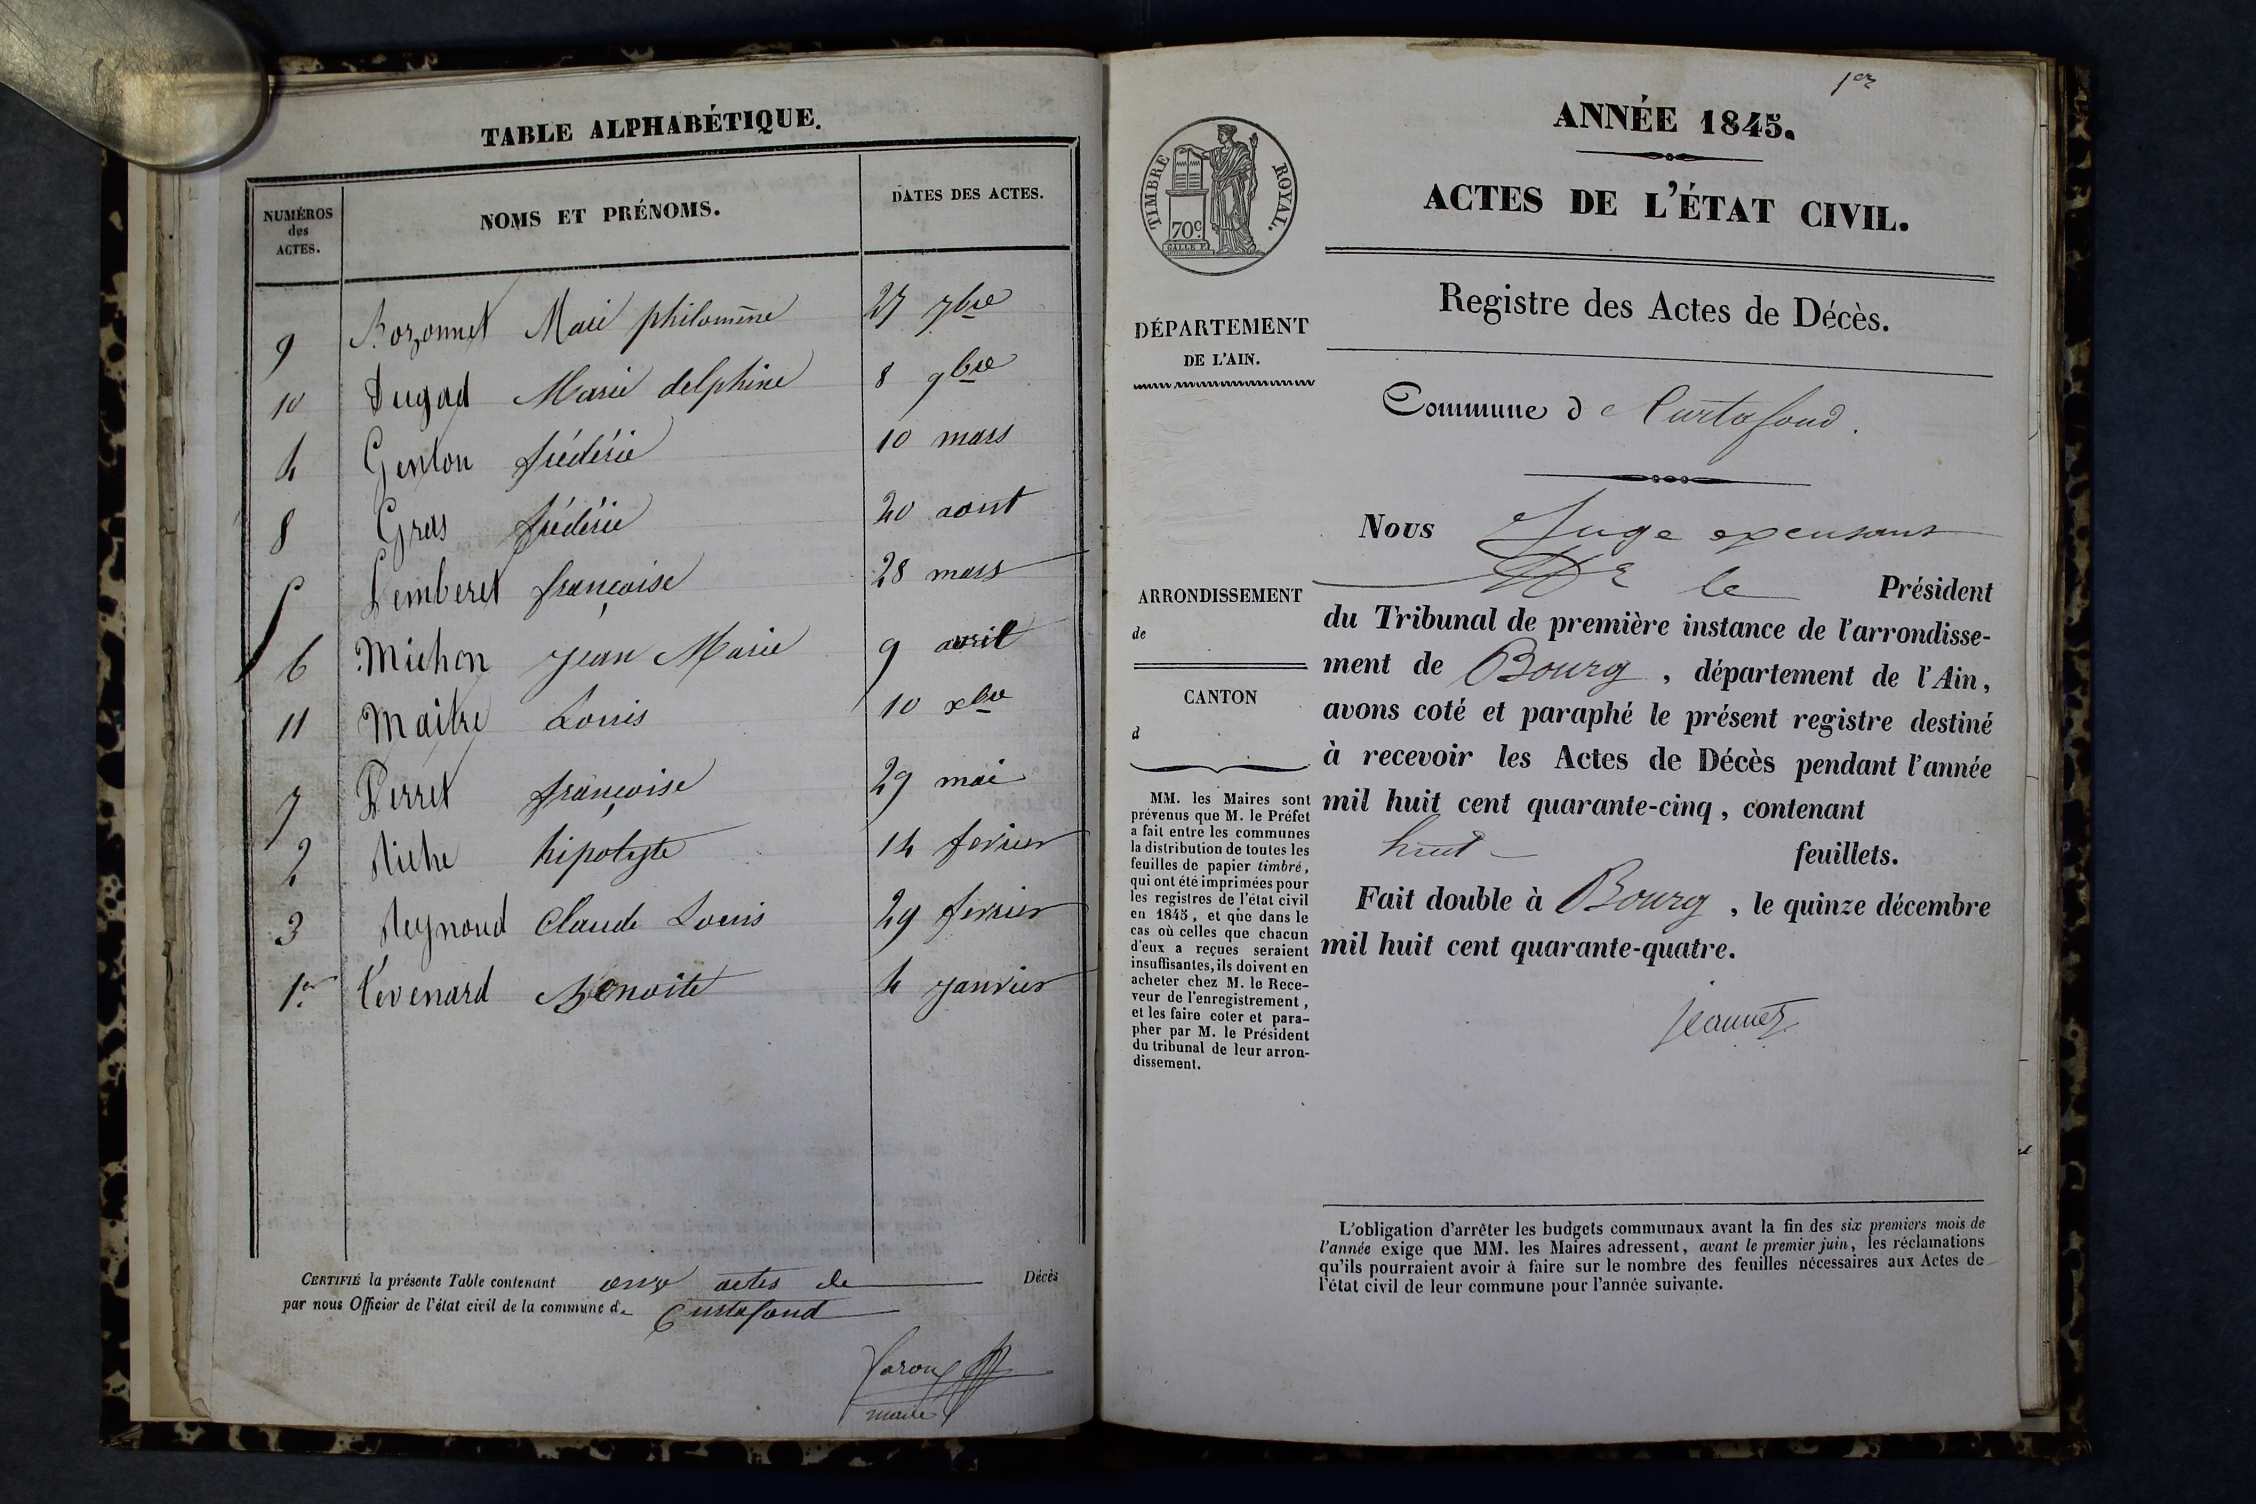 TABLE ALPHABÉTIQUE.
NUMÉROS des ACTES.
NOMS ET PRÉNOMS.
DATES DES ACTES.
9 Bozonnet Marie philomène 27 7bre
10 Dugad Marie delphine 8 9bre
4 Genton frédéric 10 mars
8 Gras frédéric 20 aout
5 Lemberet françoise 28 mars
6 Michon jean Marie 9 avril
11 Maitre Louis 10 xbre
7 Perret françoise 29 mai
2 Riche hipolyte 14 fevrier
3 Reynoud Claude Louis 29 fevrier
1er Tevenard Benoite 4 janvier
CERTIFIÉ la présente Table contenant onze actes de Décès
par nous Officier de l'état civil de la commune de Curtafond
maire
1er
ANNÉE 1845.
ACTES DE L'ÉTAT CIVIL.
TIMBRE ROYAL.
70c.
Registre des Actes de Décès.
DÉPARTEMENT
DE L'AIN.
Commune d Curtafond.
Nous Juge excusant
Mr le Président
ARRONDISSEMENT
de
CANTON
d
du Tribunal de première instance de l'arrondisse-
ment de Bourg, département de l'Ain,
avons coté et paraphé le présent registre destiné
à recevoir les Actes de Décès pendant l'année
mil huit cent quarante-cinq, contenant
huit feuillets.
Fait double à Bourg, le quinze décembre
mil huit cent quarante-quatre.
Jeannet
MM. les Maires sont
prévenus que M. le Préfet
a fait entre les communes
la distribution de toutes les
feuilles de papier timbré,
qui ont été imprimées pour
les registres de l'état civil
en 1845, et que dans le
cas où celles que chacun
d'eux a reçues seraient
insuffisantes, ils doivent en
acheter chez M. le Rece-
veur de l'enregistrement,
et les faire coter et para-
pher par M. le Président
du tribunal de leur arron-
dissement.
L'obligation d'arrêter les budgets communaux avant la fin des six premiers mois de
l'année exige que MM. les Maires adressent, avant le premier juin, les réclamations
qu'ils pourraient avoir à faire sur le nombre des feuilles nécessaires aux Actes de
l'état civil de leur commune pour l'année suivante.